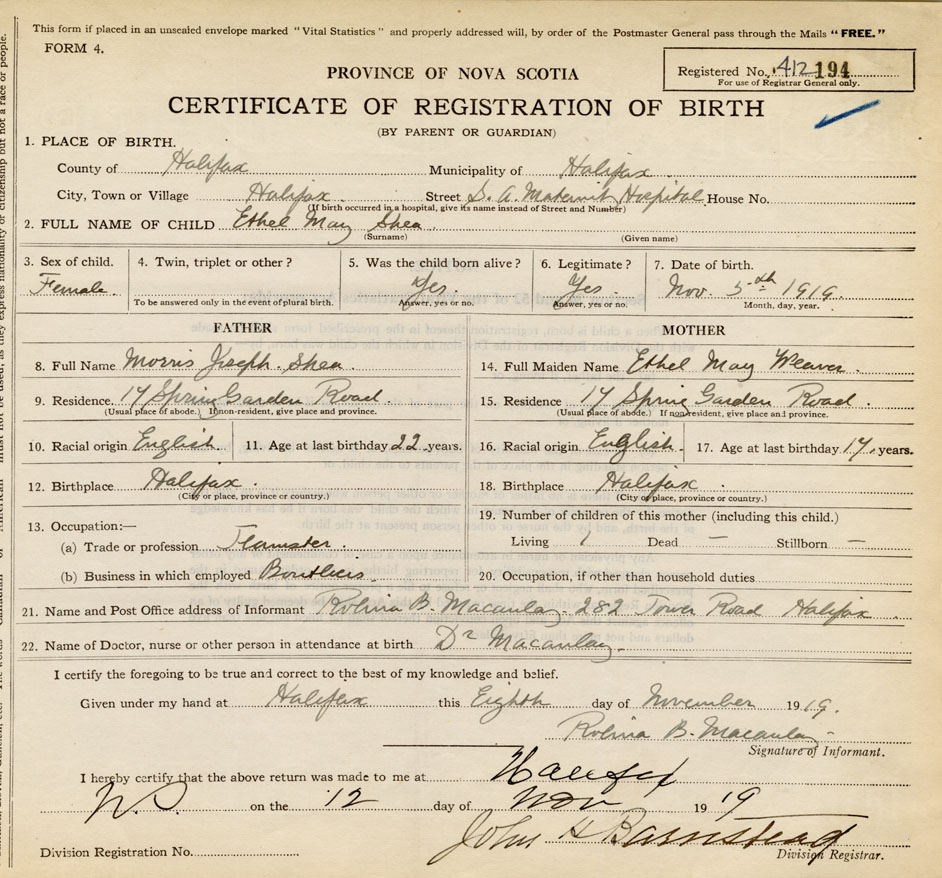 This form if placed in an unsealed envelope marked "Vital Statistics" and properly addressed will, by order of the Postmaster General pass through the Mails "FREE."
FORM 4.
Registered No. 412 194
For use of Registrar General only.
PROVINCE OF NOVA SCOTIA
CERTIFICATE OF REGISTRATION OF BIRTH
(BY PARENT OR GUARDIAN)
1. PLACE OF BIRTH.
County of Halifax Municipality of Halifax
City, Town or Village Halifax Street S. A. Maternity Hospital House No.
(If birth occurred in a hospital, give its name instead of Street and Number)
2. FULL NAME OF CHILD Ethel May Shea
(Surname) (Given name)
3. Sex of child. 4. Twin, triplet or other? 5. Was the child born alive? 6. Legitimate? 7. Date of birth.
Female. Yes. Yes. Nov. 5th 1919.
To be answered only in the event of plural birth. Answer, yes or no. Answer, yes or no. Month, day, year.
FATHER MOTHER
8. Full Name Morris Joseph Shea. 14. Full Maiden Name Ethel May Weaver.
9. Residence. 17 Spring Garden Road. 15. Residence 17 Spring Garden Road.
(Usual place of abode.) If non-resident, give place and province. (Usual place of abode.) If non-resident, give place and province.
10. Racial origin English. 11. Age at last birthday 22 years. 16. Racial origin English. 17. Age at last birthday 17. years.
12. Birthplace Halifax. 18. Birthplace Halifax.
(City or place, province or country.) (City or place, province or country.)
13. Occupation:— 19. Number of children of this mother (including this child.)
(a) Trade or profession Teamster. Living 1 Dead — Stillborn —
(b) Business in which employed 20. Occupation, if other than household duties
21. Name and Post Office address of Informant Rolina B. Macaulay. 282 Tower Road Halifax
22. Name of Doctor, nurse or other person in attendance at birth Dr Macaulay.
I certify the foregoing to be true and correct to the best of my knowledge and belief.
Given under my hand at Halifax this Eighth day of November 1919.
Rolina B. Macaulay
Signature of Informant.
I hereby certify that the above return was made to me at Halifax
N.S. on the 12 day of Nov 1919
John H Barnstead
Division Registration No. Division Registrar.